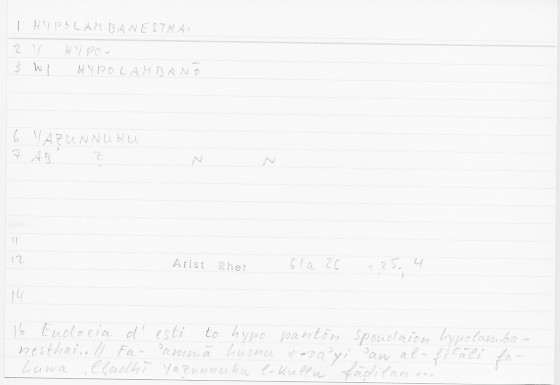 1 HYPOLAMBANESTHAI
2 Y HYPO-
3 WI HYPOLAMBANŌ
6 YAẒUNNUHU
7 AB Ẓ N N
11
12 Arist Rhet 61a 26 = 25, 4
14
16 Eudoxia d' esti to hypo pantōn spoudaion hypolamba-
nesthai.. // Fa- ʾammā ḥusnu r-raʾyi ʾan al-fiʿāli fa-
huwa lladhī yaẓunnuhu l-kullu fāḍilan ...